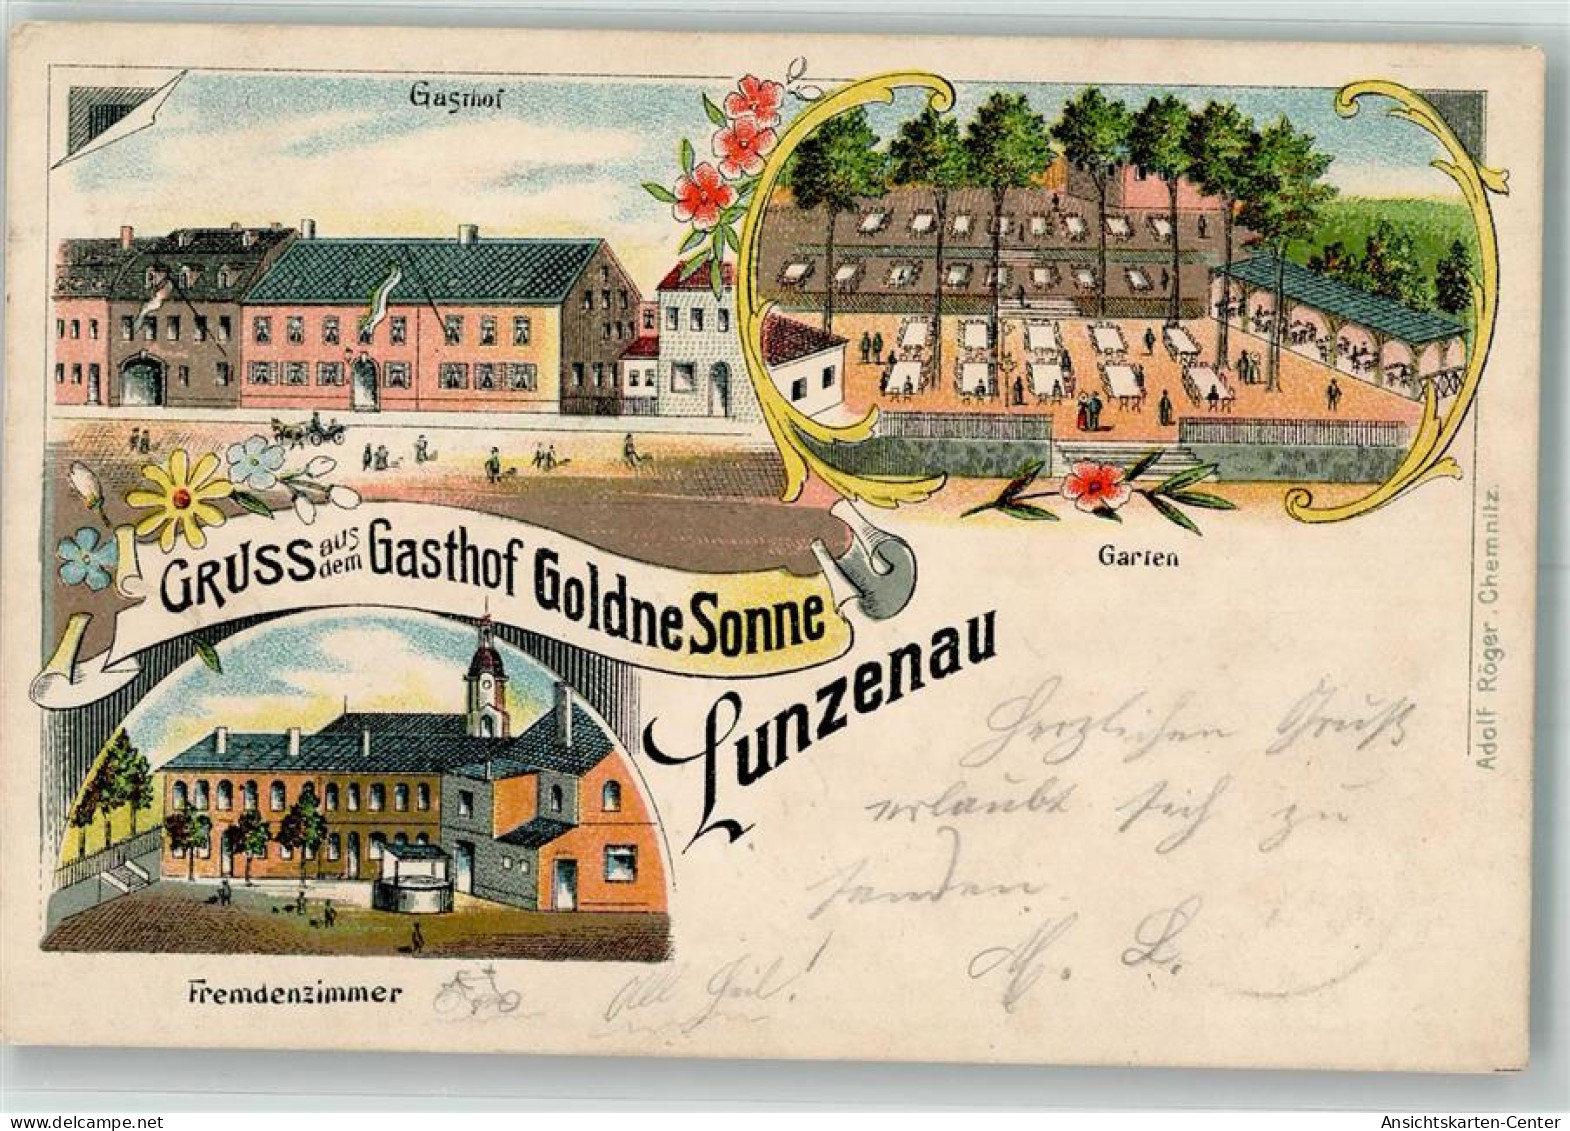 Gasthof
Garten
GRUSS aus dem Gasthof Goldne Sonne
Lunzenau
Fremdenzimmer
Adolf Röger, Chemnitz.
Herzlichen Gruß
erlaubt sich zu
senden
M. L.
All Heil!
www.delcampe.net
Ansichtskarten-Center